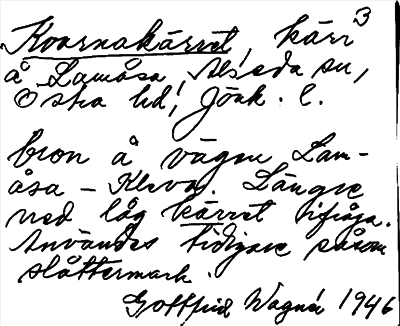 3
Kvarnakärret, kärr
å Lamåsa, Alseda sn,
Östra hd, Jönk. l.
bron å vägen Lam-
åsa - Kleva. Längre
ned låg kärret ifråga.
Användes tidigare såsom
slåttermark.
Gottfrid Wagnér 1946